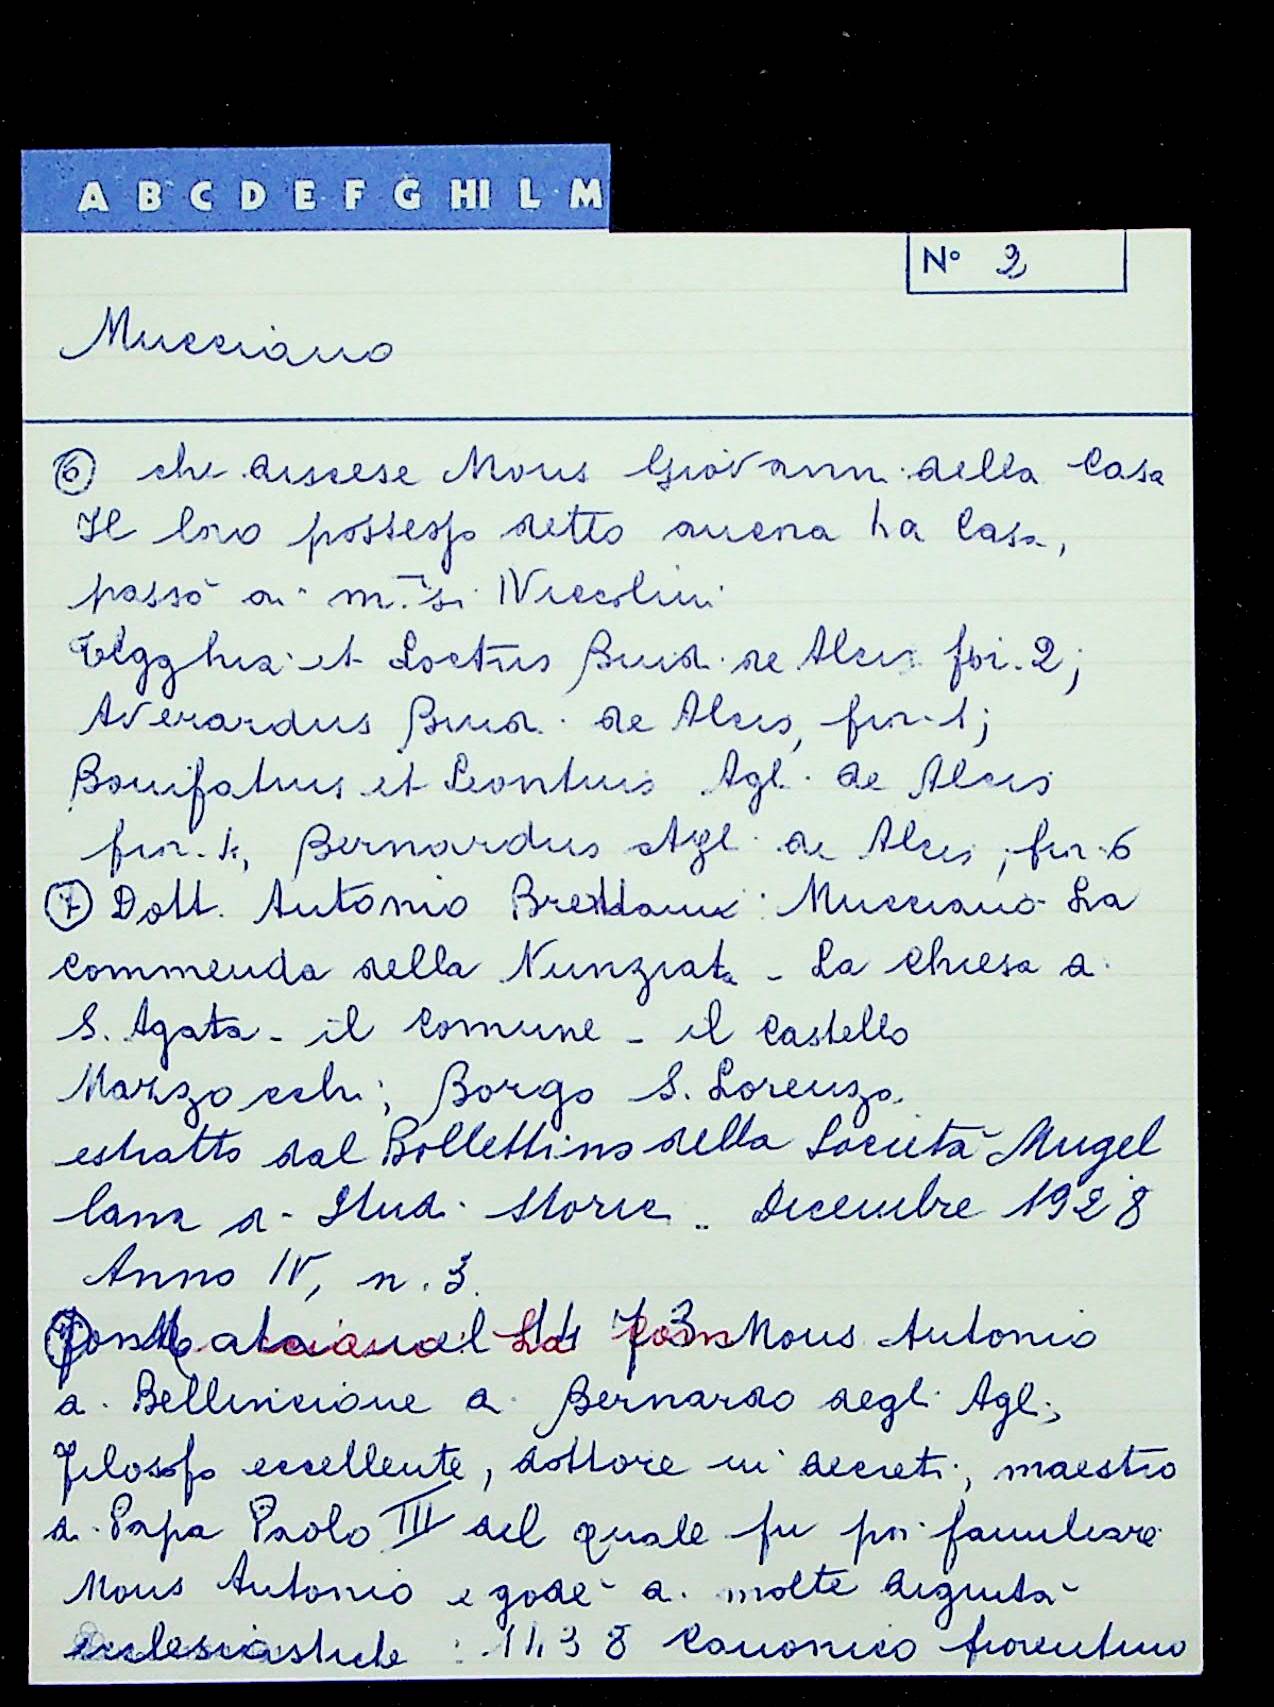 A B C D E F G HI L M
N° 2
Mucciano
⑥ che discese Mons Giovanni della Casa
Il loro possesso detto ancora La Casa,
passò ai m.si Niccolini
Tegghia et Loctus Buid. de Alcis fior. 2;
Averardus Buid. de Alcis, fior. 1;
Bonifatius et Leontius Agl. de Alcis
fior. 4, Bernardus Agl. de Alcis, fior. 6
⑦ Dott. Antonio Mucciano La
Commenda della Nunziata - La Chiesa di
S. Agata - il Comune - il Castello
Marzocchi; Borgo S. Lorenzo.
estratto dal Bollettino della Società Mugel
lana di Studi Storici. Dicembre 1928
Anno IV, n. 3.
Mons Antonio
di Bellincione di Bernardo degli Agli,
filosofo eccellente, dottore in decreti, maestro
di Papa Paolo III del quale fu poi familiare
Mons Antonio e godé di molte dignità
ecclesiastiche: 1438 Canonico fiorentino